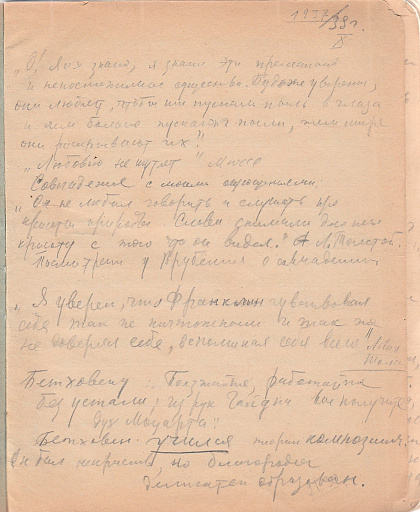 1937/38 г.
X
„О! Я их знаю, я знаю эти прелестные
и непостижимые существа. Будьте уверены,
они любят, чтоб им пускали пыль в глаза
и чем более пускают пыли, тем шире
они раскрывают их!"
„Любовью не шутят" Мюссе
Совпадения с моими ощущениями:
„Он не любил говорить и слушать про
красоту природы. Слова снимали для него
красоту с того что он видел." Л. Толстой.
Посмотреть у Врубеля
„Я уверен, что Франклин чувствовал
себя так же ничтожным и так же
не доверял себе, вспоминая
Бетховену: Поезжайте, работайте
без устали: из рук Гайдна вы получите
дух Моцарта"
Бетховен учился теории композиции.
Он был некрасив, но благороден
образован.